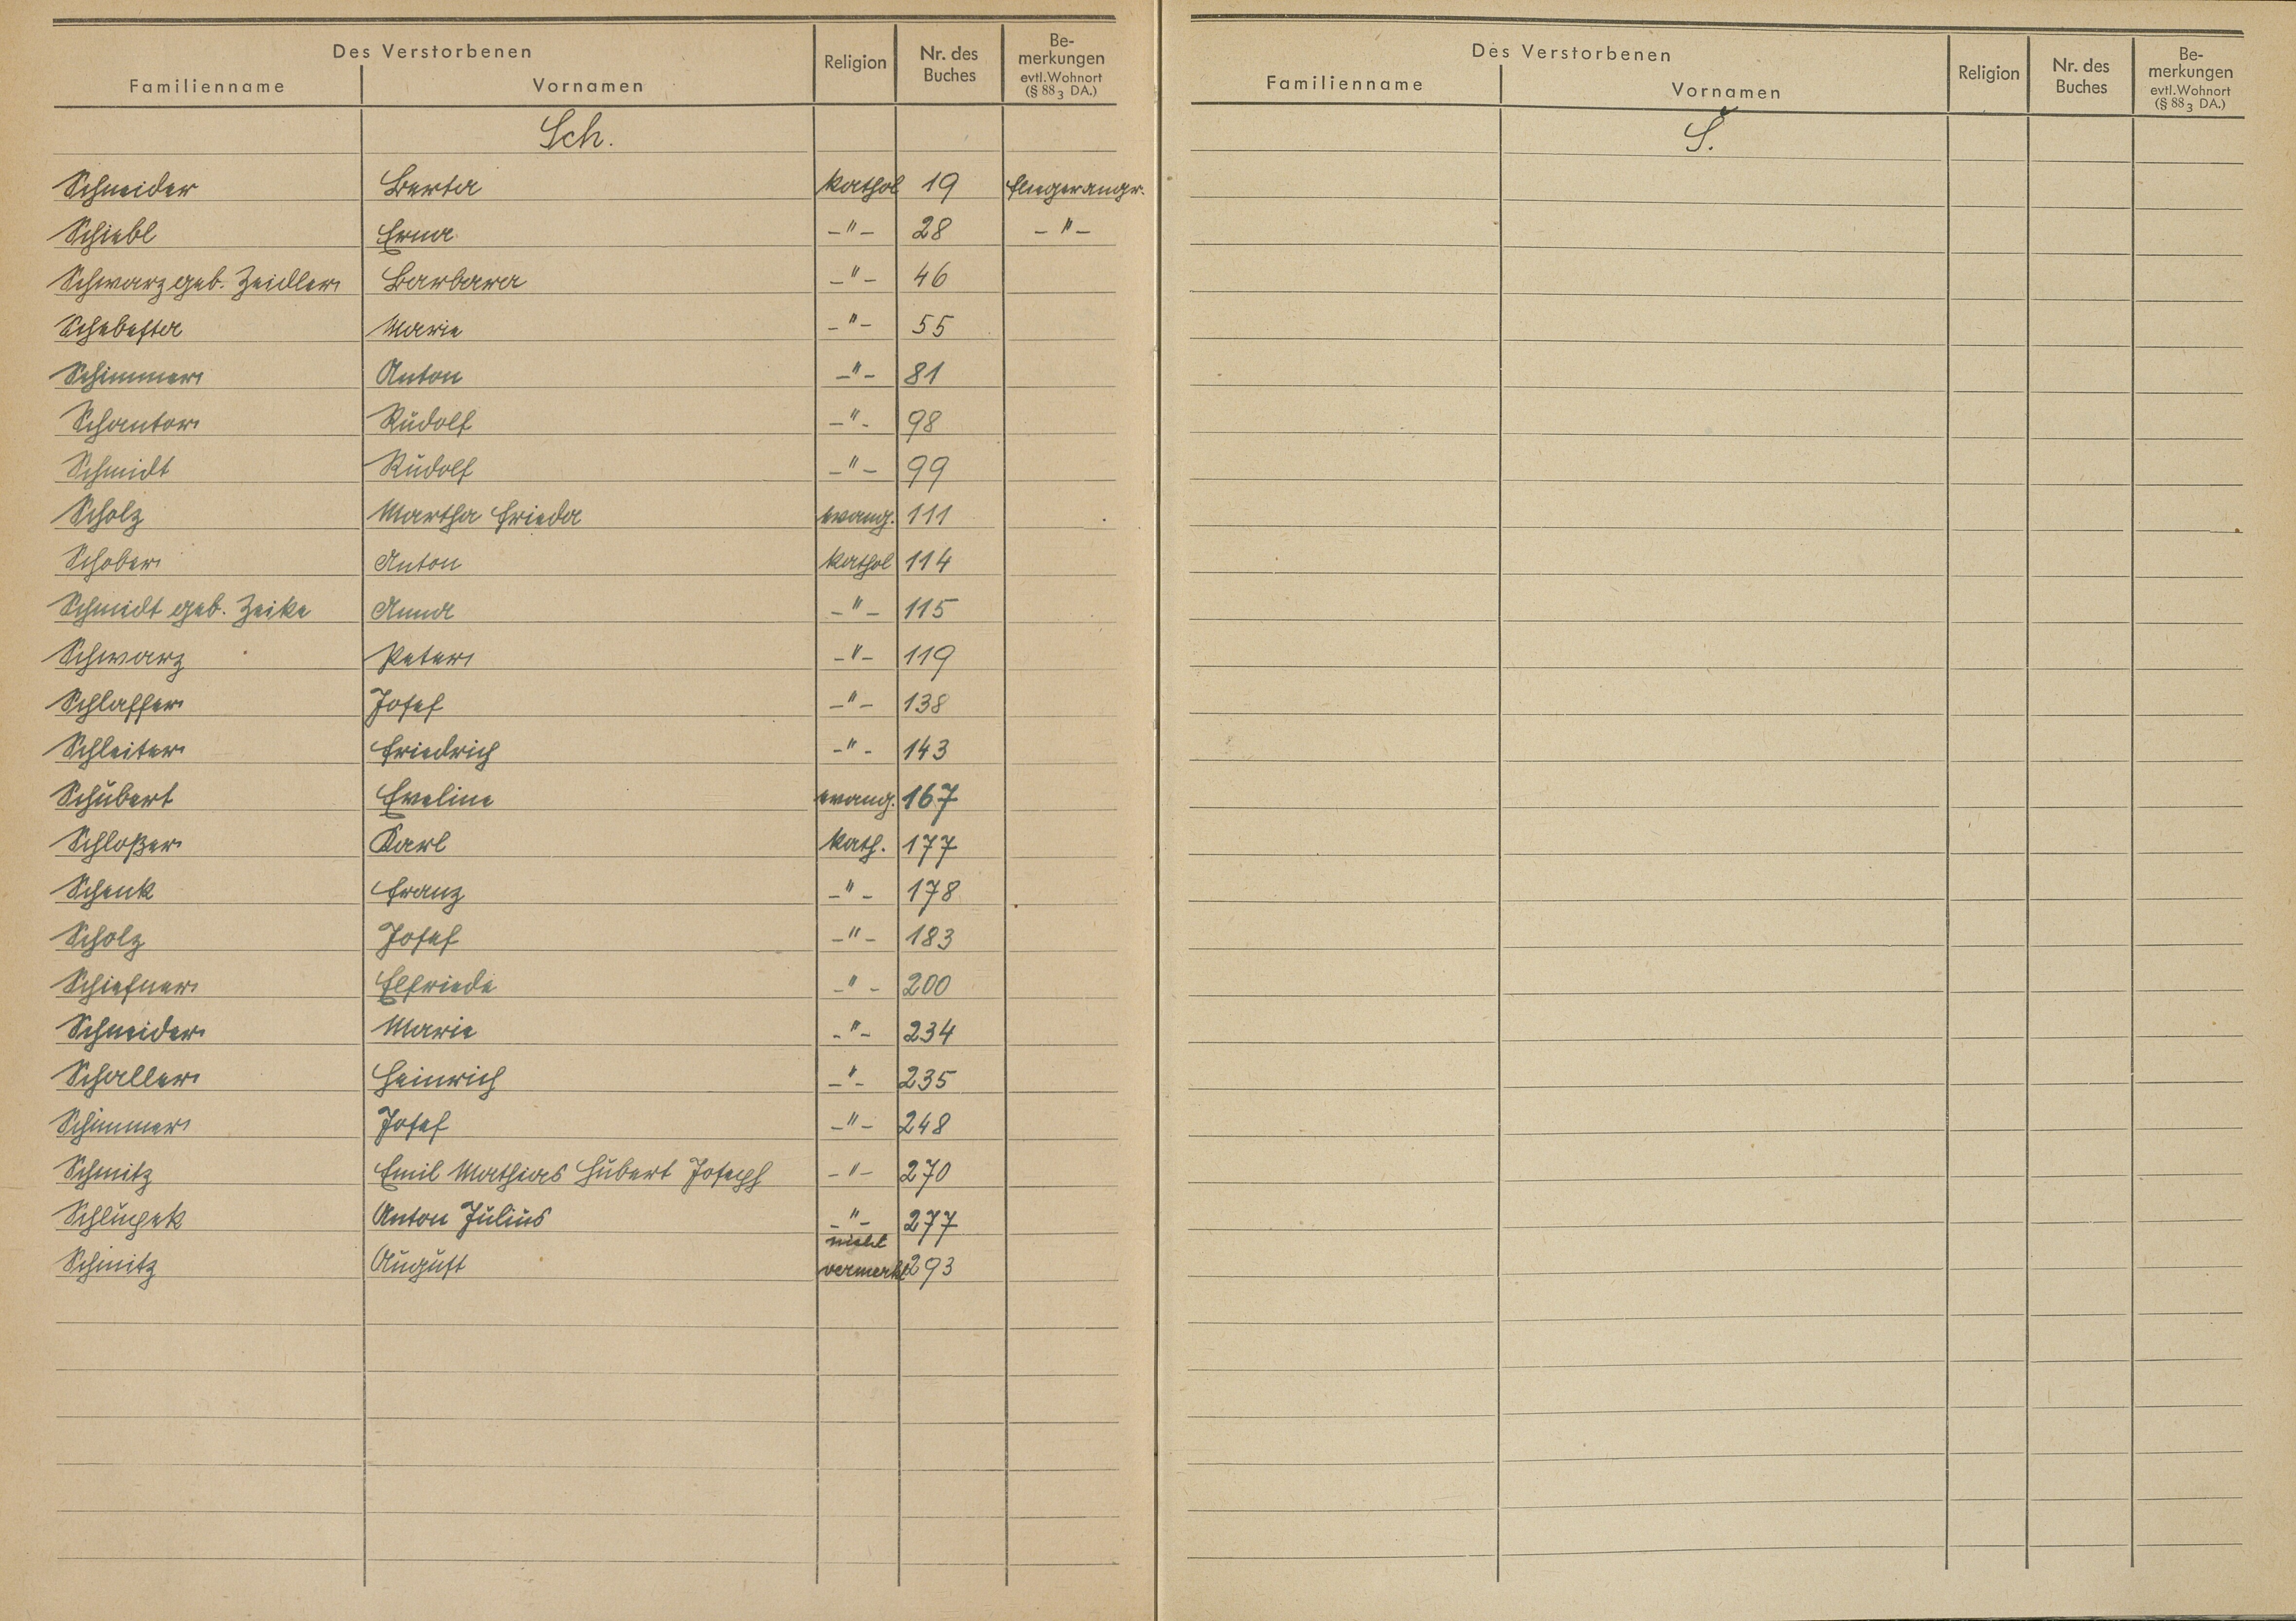 Des Verstorbenen
Familienname Vornamen Religion Nr. des Buches Be-merkungen evtl. Wohnort (§ 88 3 DA.)
Sch.
Schneider Berta kathol 19 Fliegerangr.
Schiebl Erna -"- 28 -"-
Schwarz geb. Zeidler Barbara -"- 46
Schebesta Marie -"- 55
Schimmer Anton -"- 81
Schantor Rudolf -"- 98
Schmidt Rudolf -"- 99
Scholz Martha Frieda evang. 111
Schober Anton kathol 114
Schmidt geb. Zeike Anna -"- 115
Schwarz Peter -"- 119
Schlaffer Josef -"- 138
Schleiter Friedrich -"- 143
Schubert Eveline evang. 167
Schloßer Karl kath. 177
Schenk Franz -"- 178
Scholz Josef -"- 183
Schiefner Elfriede -"- 200
Schneider Marie -"- 234
Schaller Heinrich -"- 235
Schimmer Josef -"- 248
Schmitz Emil Mathias Hubert Joseph -"- 270
Schlupek Anton Julius -"- 277
Schmitz August nicht vermerkt 293
Des Verstorbenen
Familienname Vornamen Religion Nr. des Buches Be-merkungen evtl. Wohnort (§ 88 3 DA.)
Š.